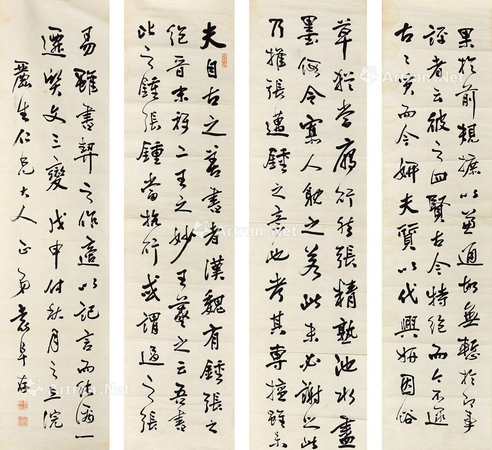 果於前規摭以兼通故無慙於即事
評者云彼之四賢古今特絕而今不逮
古古質而今妍夫質以代興妍因俗
草猶當雁行然張精熟池水盡
墨假令寡人耽之若此未必謝之此
乃推張邁鍾之意也考其專擅雖未
夫自古之善書者漢魏有鍾張之
絕晉末稱二王之妙王羲之云吾書
比之鍾張鍾當抗行或謂過之張
易雖書契之作適以記言而淳醨一
遷質文三變 戊申 秋月之三浣
麗生仁兄大人正 弟袁阜